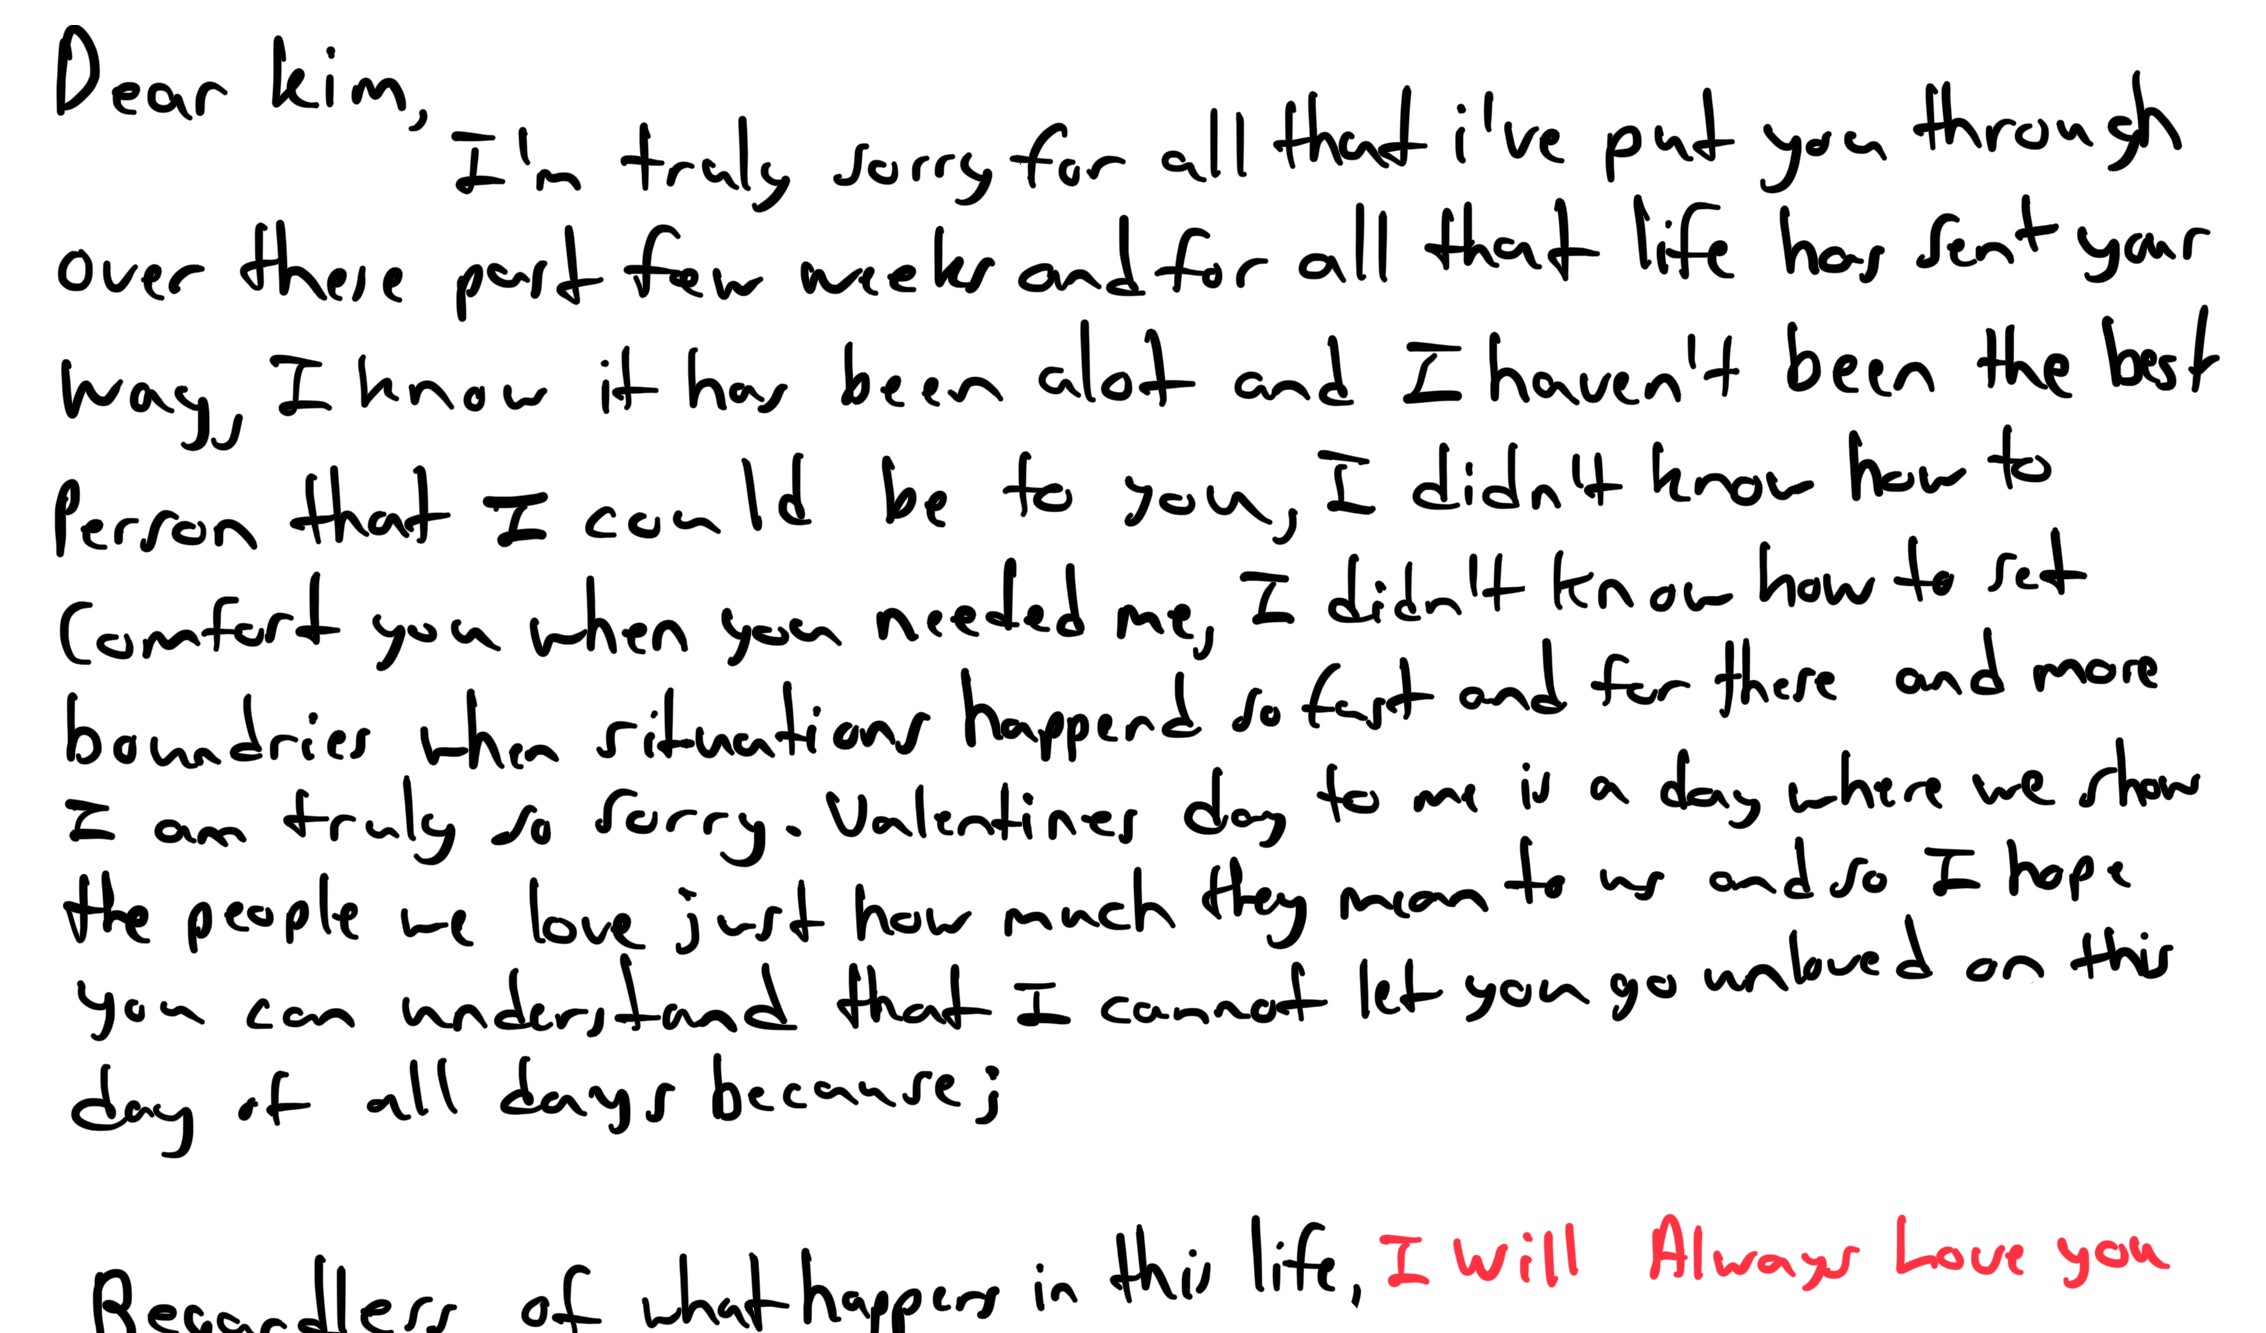 Dear kim,
I'm truly sorry for all that i've put you through
over these past few weeks and for all that life has sent your
way, I know it has been alot and I haven't been the best
Person that I could be to you, I didn't know how to
Comfort you when you needed me, I didn't know how to set
boundries when situations happend so fast and for these and more
I am truly so sorry. Valentines day to me is a day where we show
the people we love just how much they mean to us and so I hope
you can understand that I cannot let you go unloved on this
day of all days because;
Regardless of what happens in this life, I Will Always Love you